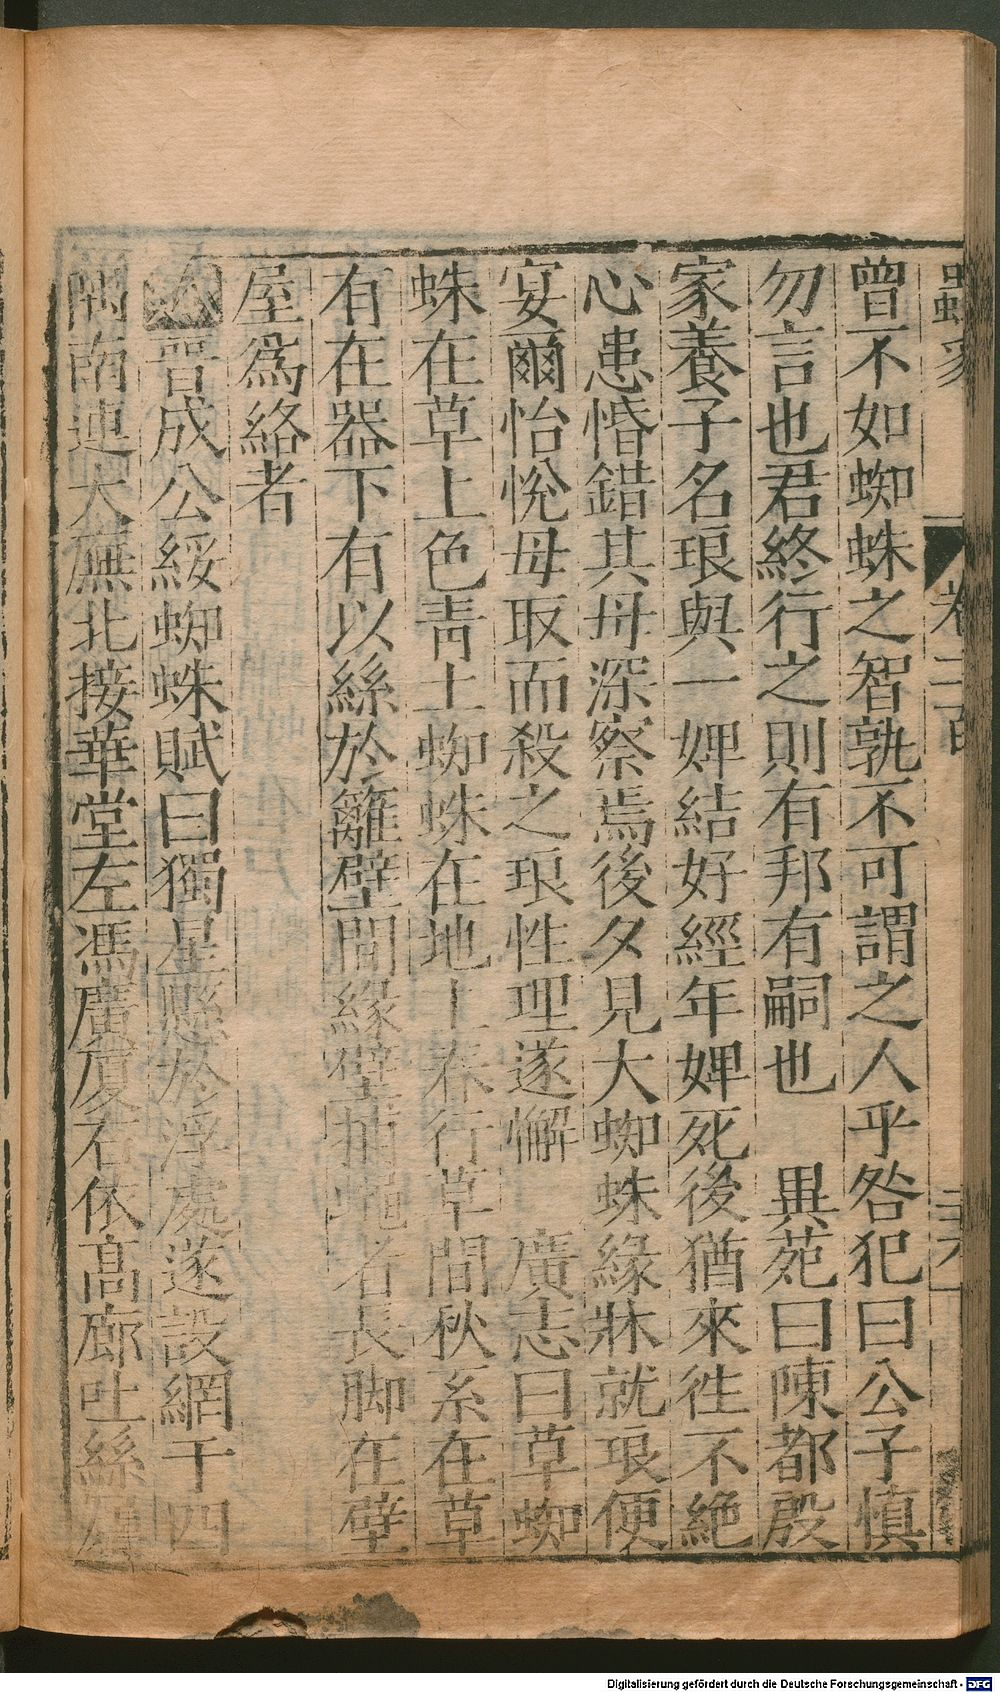 曾不如蜘蛛之智孰不可謂之人乎咎犯曰公子慎
勿言也君終行之則有邦有嗣也　異苑曰陳都殷
家養子名琅與一婢結好經年婢死後猶來徃不絶
心患惛錯其母深察焉後夕見大蜘蛛緣牀就琅便
宴爾怡悅母取而殺之琅性理遂懈　廣志曰草蜘
蛛在草上色青土蜘蛛在地上春行草間秋系在草
有在器下有以絲於籬壁間緣壁捕蠅者長脚在壁
屋爲絡者
晋成公綏蜘蛛賦曰獨星懸於浮處遂設網于四
隅南連大廡北接華堂左馮廣廈右依高廊吐絲
卷 二百
Digitalisierung gefördert durch die Deutsche Forschungsgemeinschaft - DFG